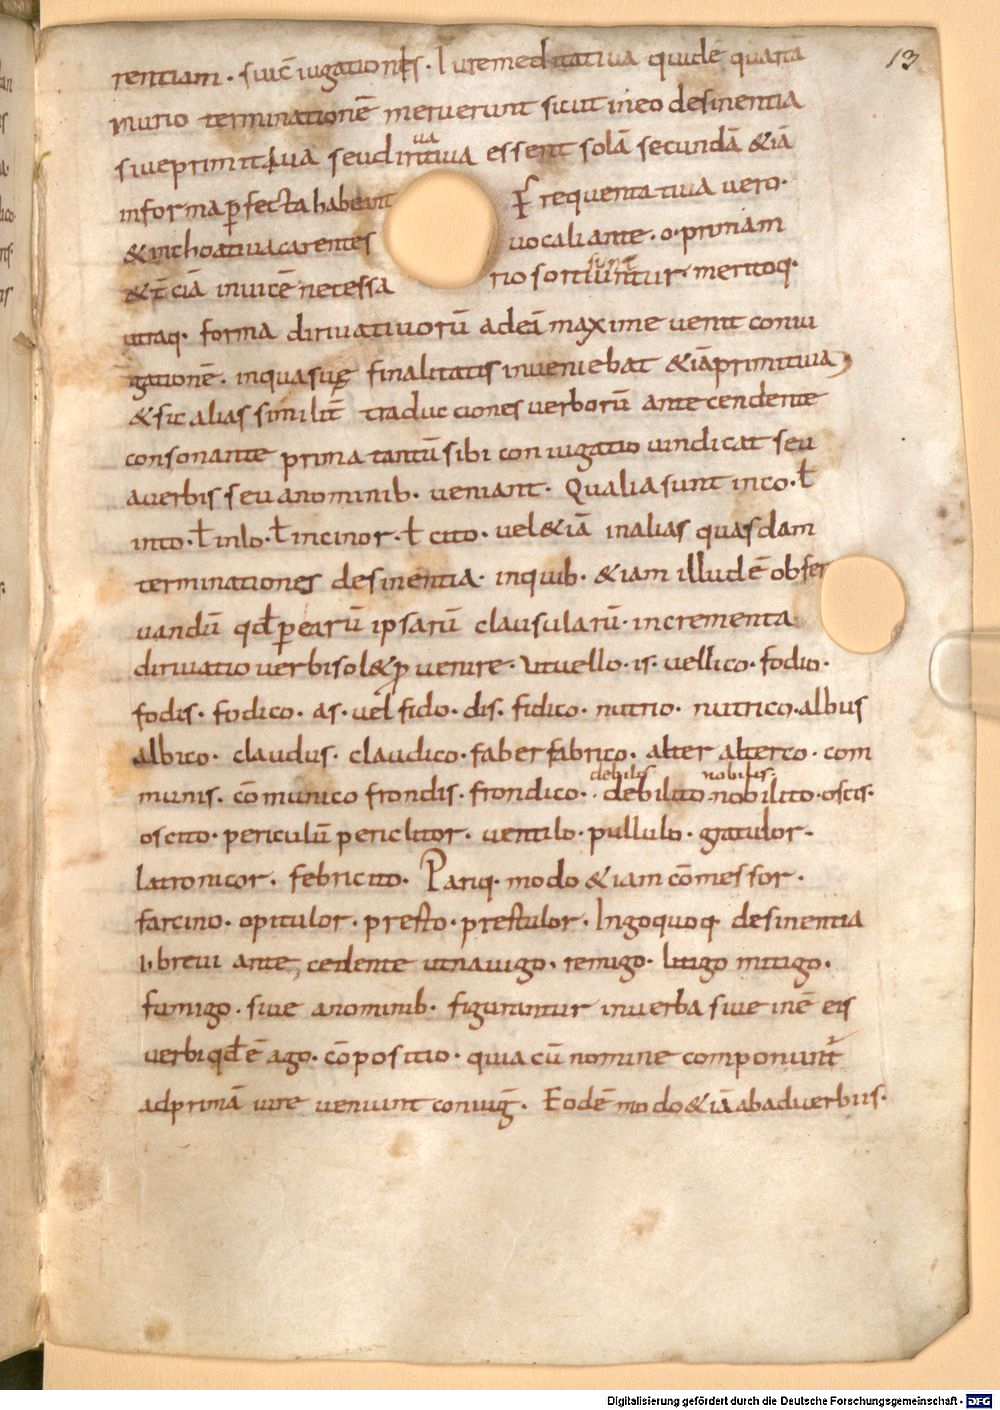 13
rentiam. suic̄ iugationes. Iure meditatiua quidē quartā
murio terminationē meruerunt sicut in eo desinentia
siue primitiua seu diriuatiua essent solā secundā &iā
in forma p̄fecta habent Frequentatiua uero.
&inchoatiua carentes uocali ante .o. priuiam
&t̄ciā inuicē necessa rio sortiuntur sunt meritoq.
utraq. forma diriuatiuorū ad eā maxime uenit coniu
gationē. in qua suę finalitatis inueniebat &iā primitiua
&sic alias similit̄ traducciones uerborū antecendente
consonante prima tantū sibi coniugatio uindicat seu
a uerbis seu a nominib. ueniant. Qualia sunt in co. ł
in to. ł in lo. ł in cinor. ł cito. uel &iā in alias quasdam
terminationes desinentia. in quib. &iam illud ē obser
uandū qđ p̄ earū ipsarū clausularū. incrementa
diriuatio uerbis ol& puenire. Ut uello. is. uellico. fodio.
fodis. fodico. as. uel fido. dis. fidico. nutrio. nutrico. albus
albico. claudus. claudico. faber fabrico. alter alterco. com
munis. cōmunico frondis. frondico. debilis debilito nobilis. nobilito. oscis.
oscito. periculū periclitor. uentilo. pullulo. gratulor.
latronicor. febricito. Pariq. modo &iam cōmessor.
farcino. opitulor. presto. prestulor. In go quoq. desinentia
.i. breui ante cedente ut nauigo. remigo. litigo mitigo.
fumigo. siue a nominib. figurantur in uerba siue in ē eis
uerbi qđ ē ago. cōpositio. quia cū nomine componunt̄
ad primā iure ueniunt coniuḡ. Eodē modo &iā ab aduerbiis.
Digitalisierung gefördert durch die Deutsche Forschungsgemeinschaft · DFG